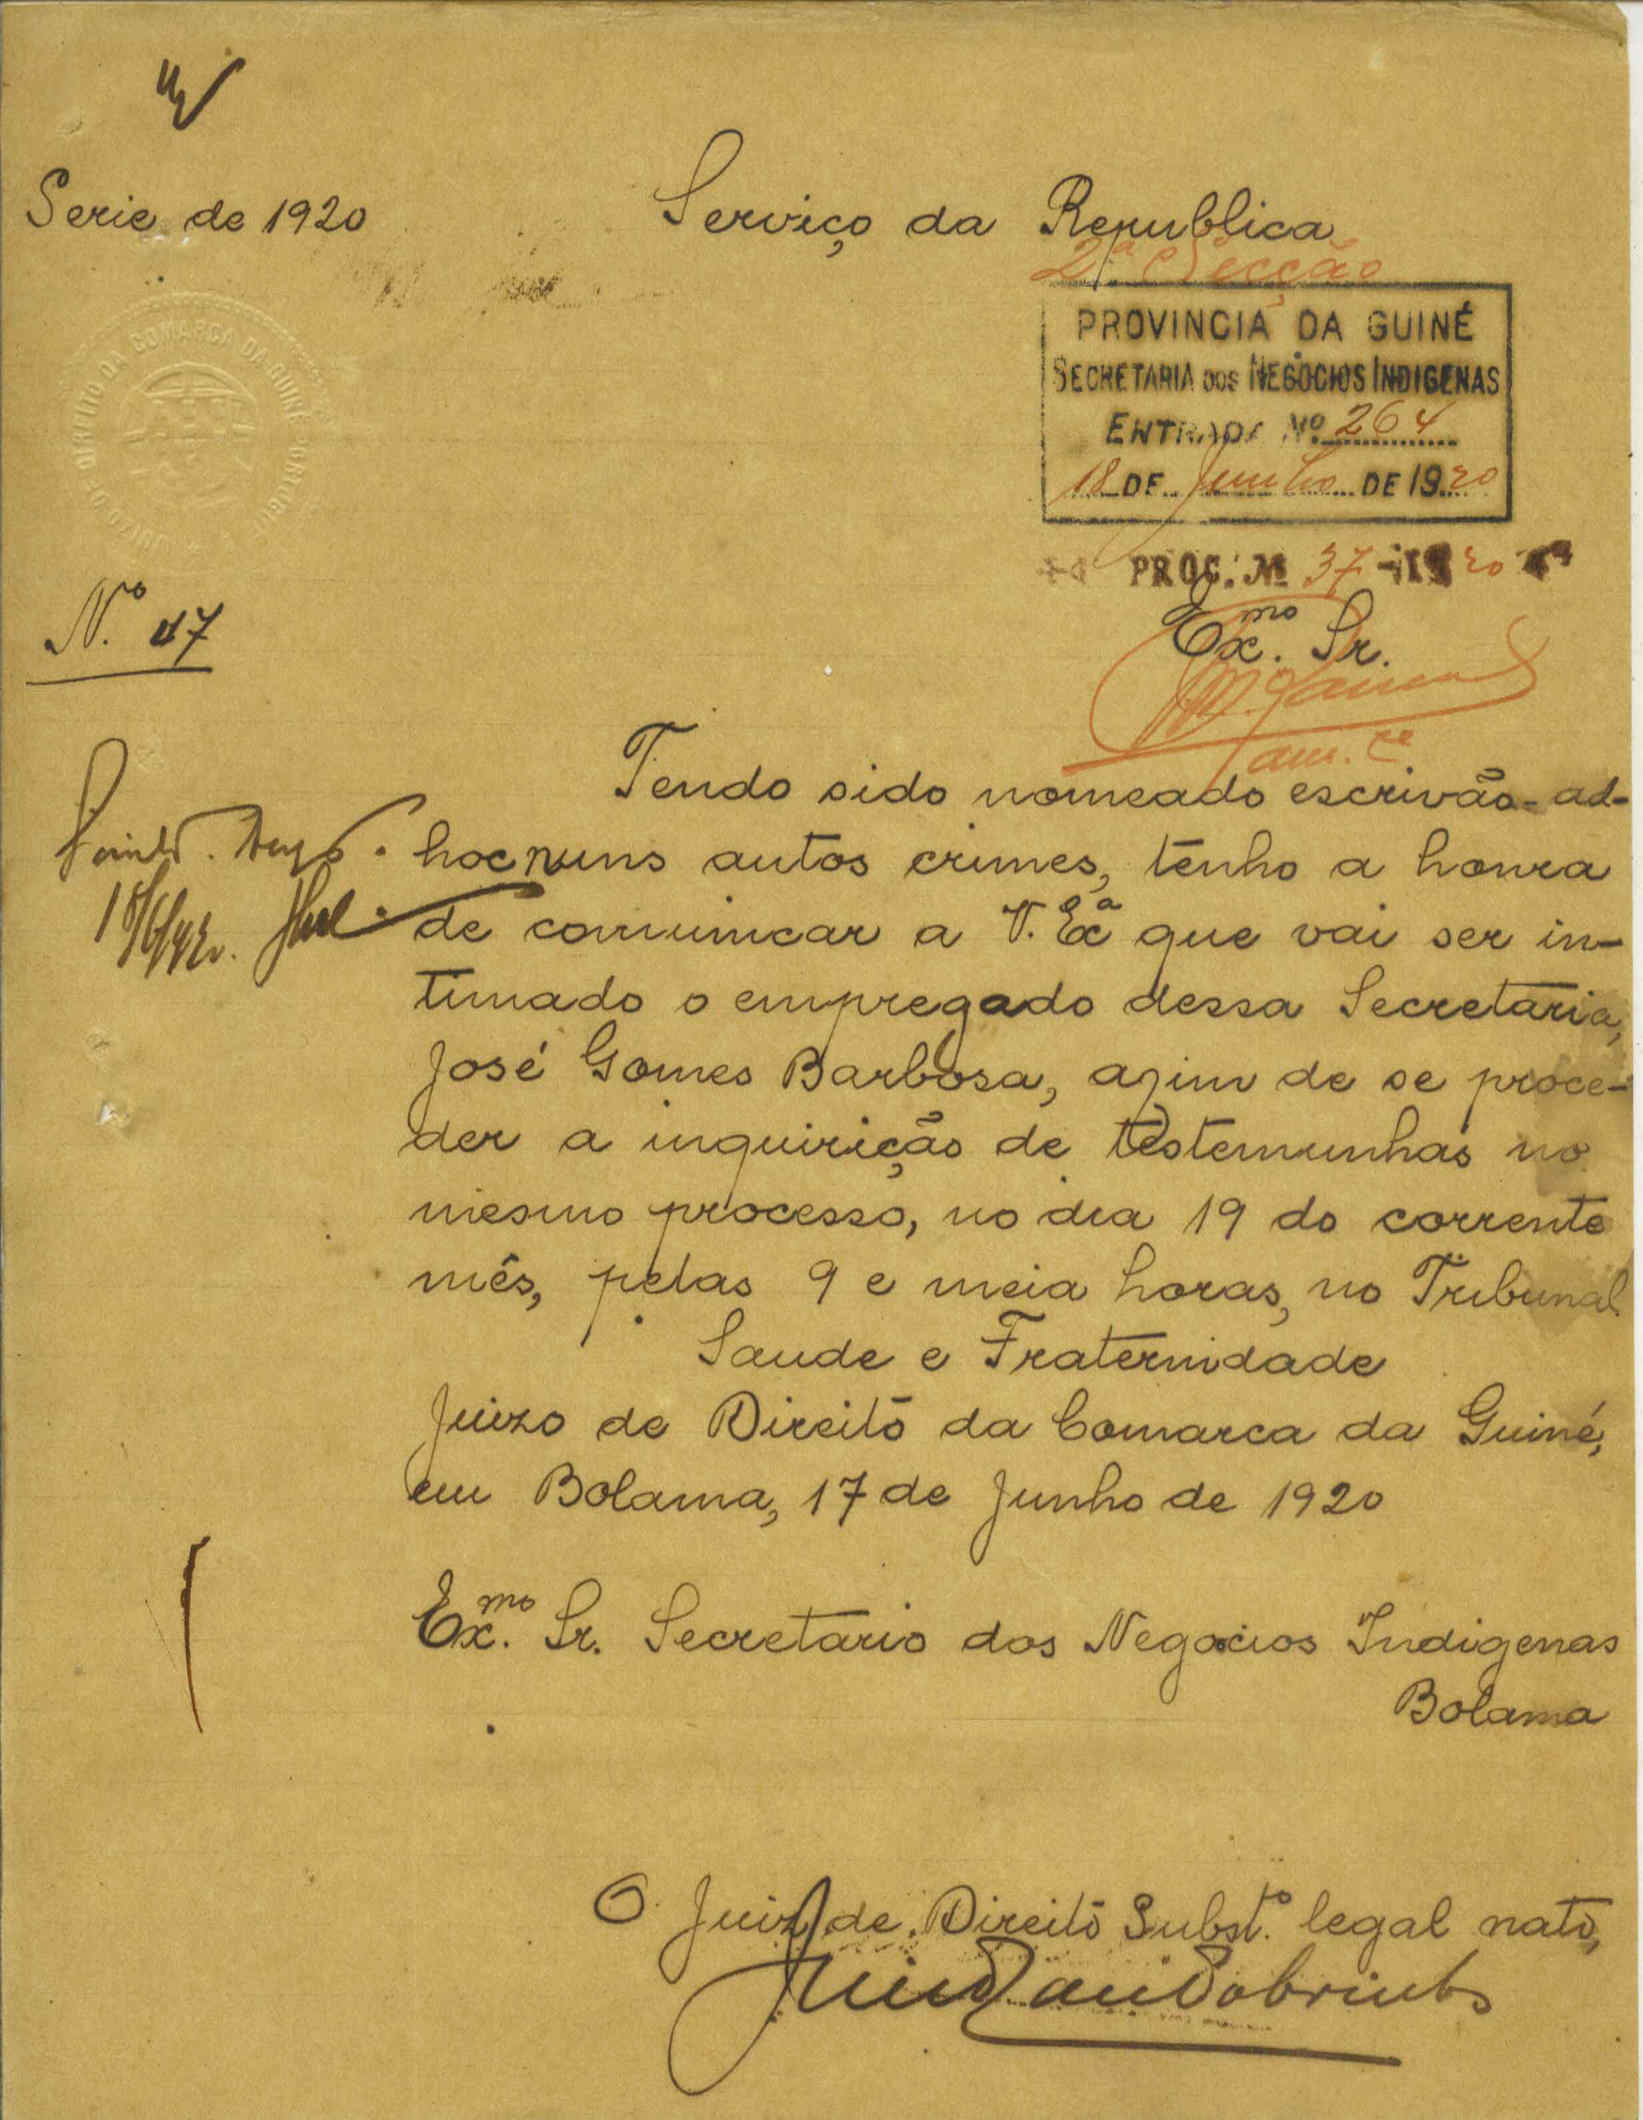 Serie de 1920
Serviço da Republica
2ª Secção
PROVINCIA DA GUINÉ
SECRETARIA DOS NEGOCIOS INDIGENAS
ENTRADA Nº 264
18 DE Junho DE 1920
PROC. Nº 37-1920
JUIZO DE DIREITO DA COMARCA DA GUINÉ
N.º 47
Exmo. Sr.
Tendo sido nomeado escrivão-ad-
hoc nuns autos crimes, tenho a honra
de comunicar a V. Exª que vai ser in-
timado o empregado dessa Secretaria,
José Gomes Barbosa, afim de se proce-
der a inquirição de testemunhas no
mesmo processo, no dia 19 do corrente
mês, pelas 9 e meia horas, no Tribunal
Saude e Fraternidade
Juizo de Direito da Comarca da Guiné,
em Bolama, 17 de Junho de 1920
Exmo. Sr. Secretario dos Negocios Indigenas
Bolama
O Juiz de Direito Subst.to legal nato,